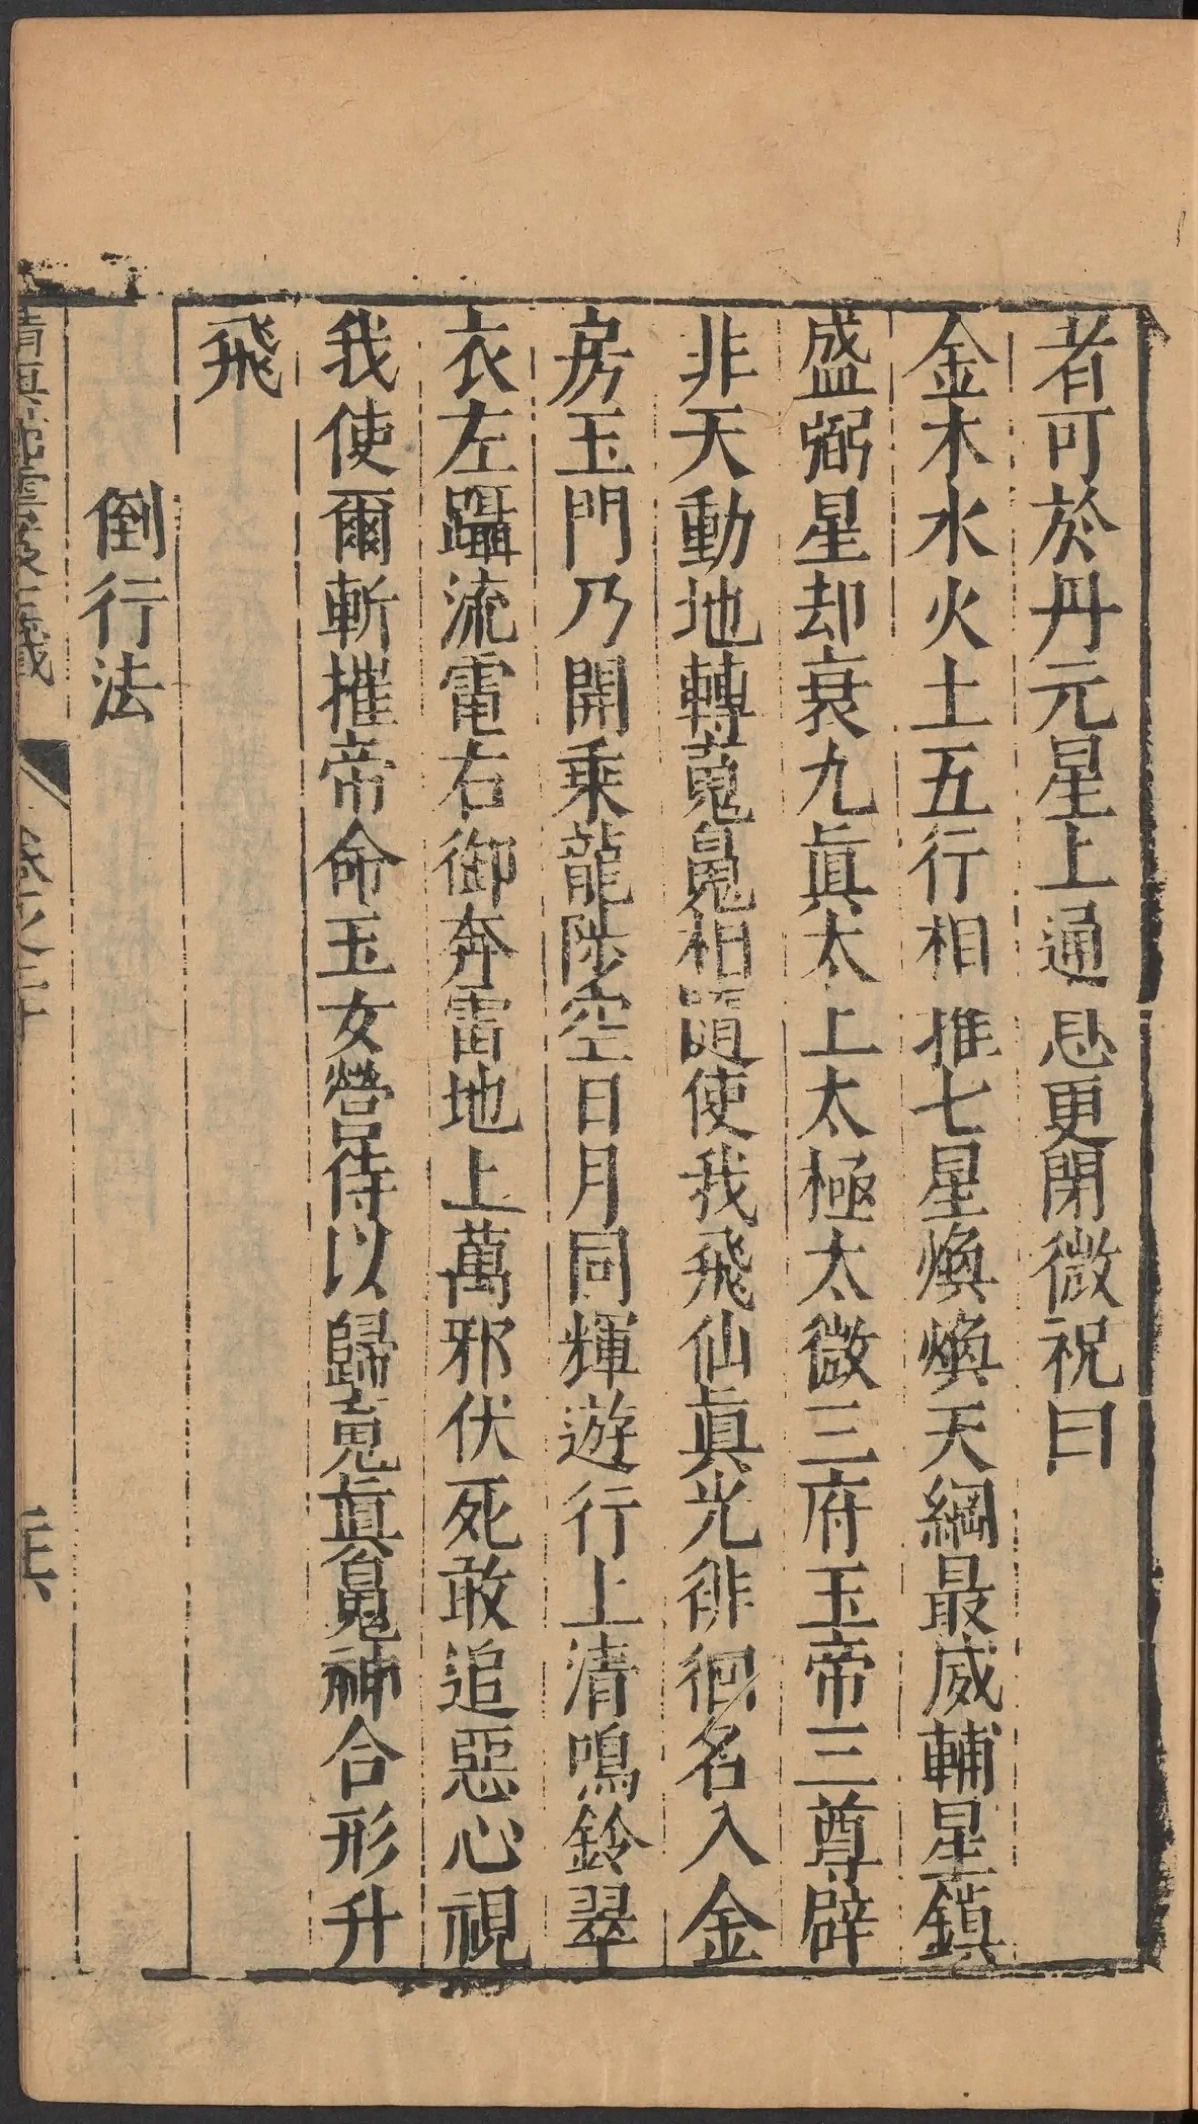 者可於丹元星上通息更閉微祝曰
金木水火土五行相推七星煥煥天綱最威輔星鎮
盛弼星却衰九眞太上太極太微三府玉帝三尊辟
非天動地轉䰟鬽相隨使我飛仙眞光徘徊名入金
房玉門乃開乘龍陟空日月同輝遊行上清鳴鈴翠
衣左躡流電右御奔雷地上萬邪伏死敢追惡心視
我使爾斬摧帝命玉女營侍以歸䰟眞魄神合形升
飛
倒行法